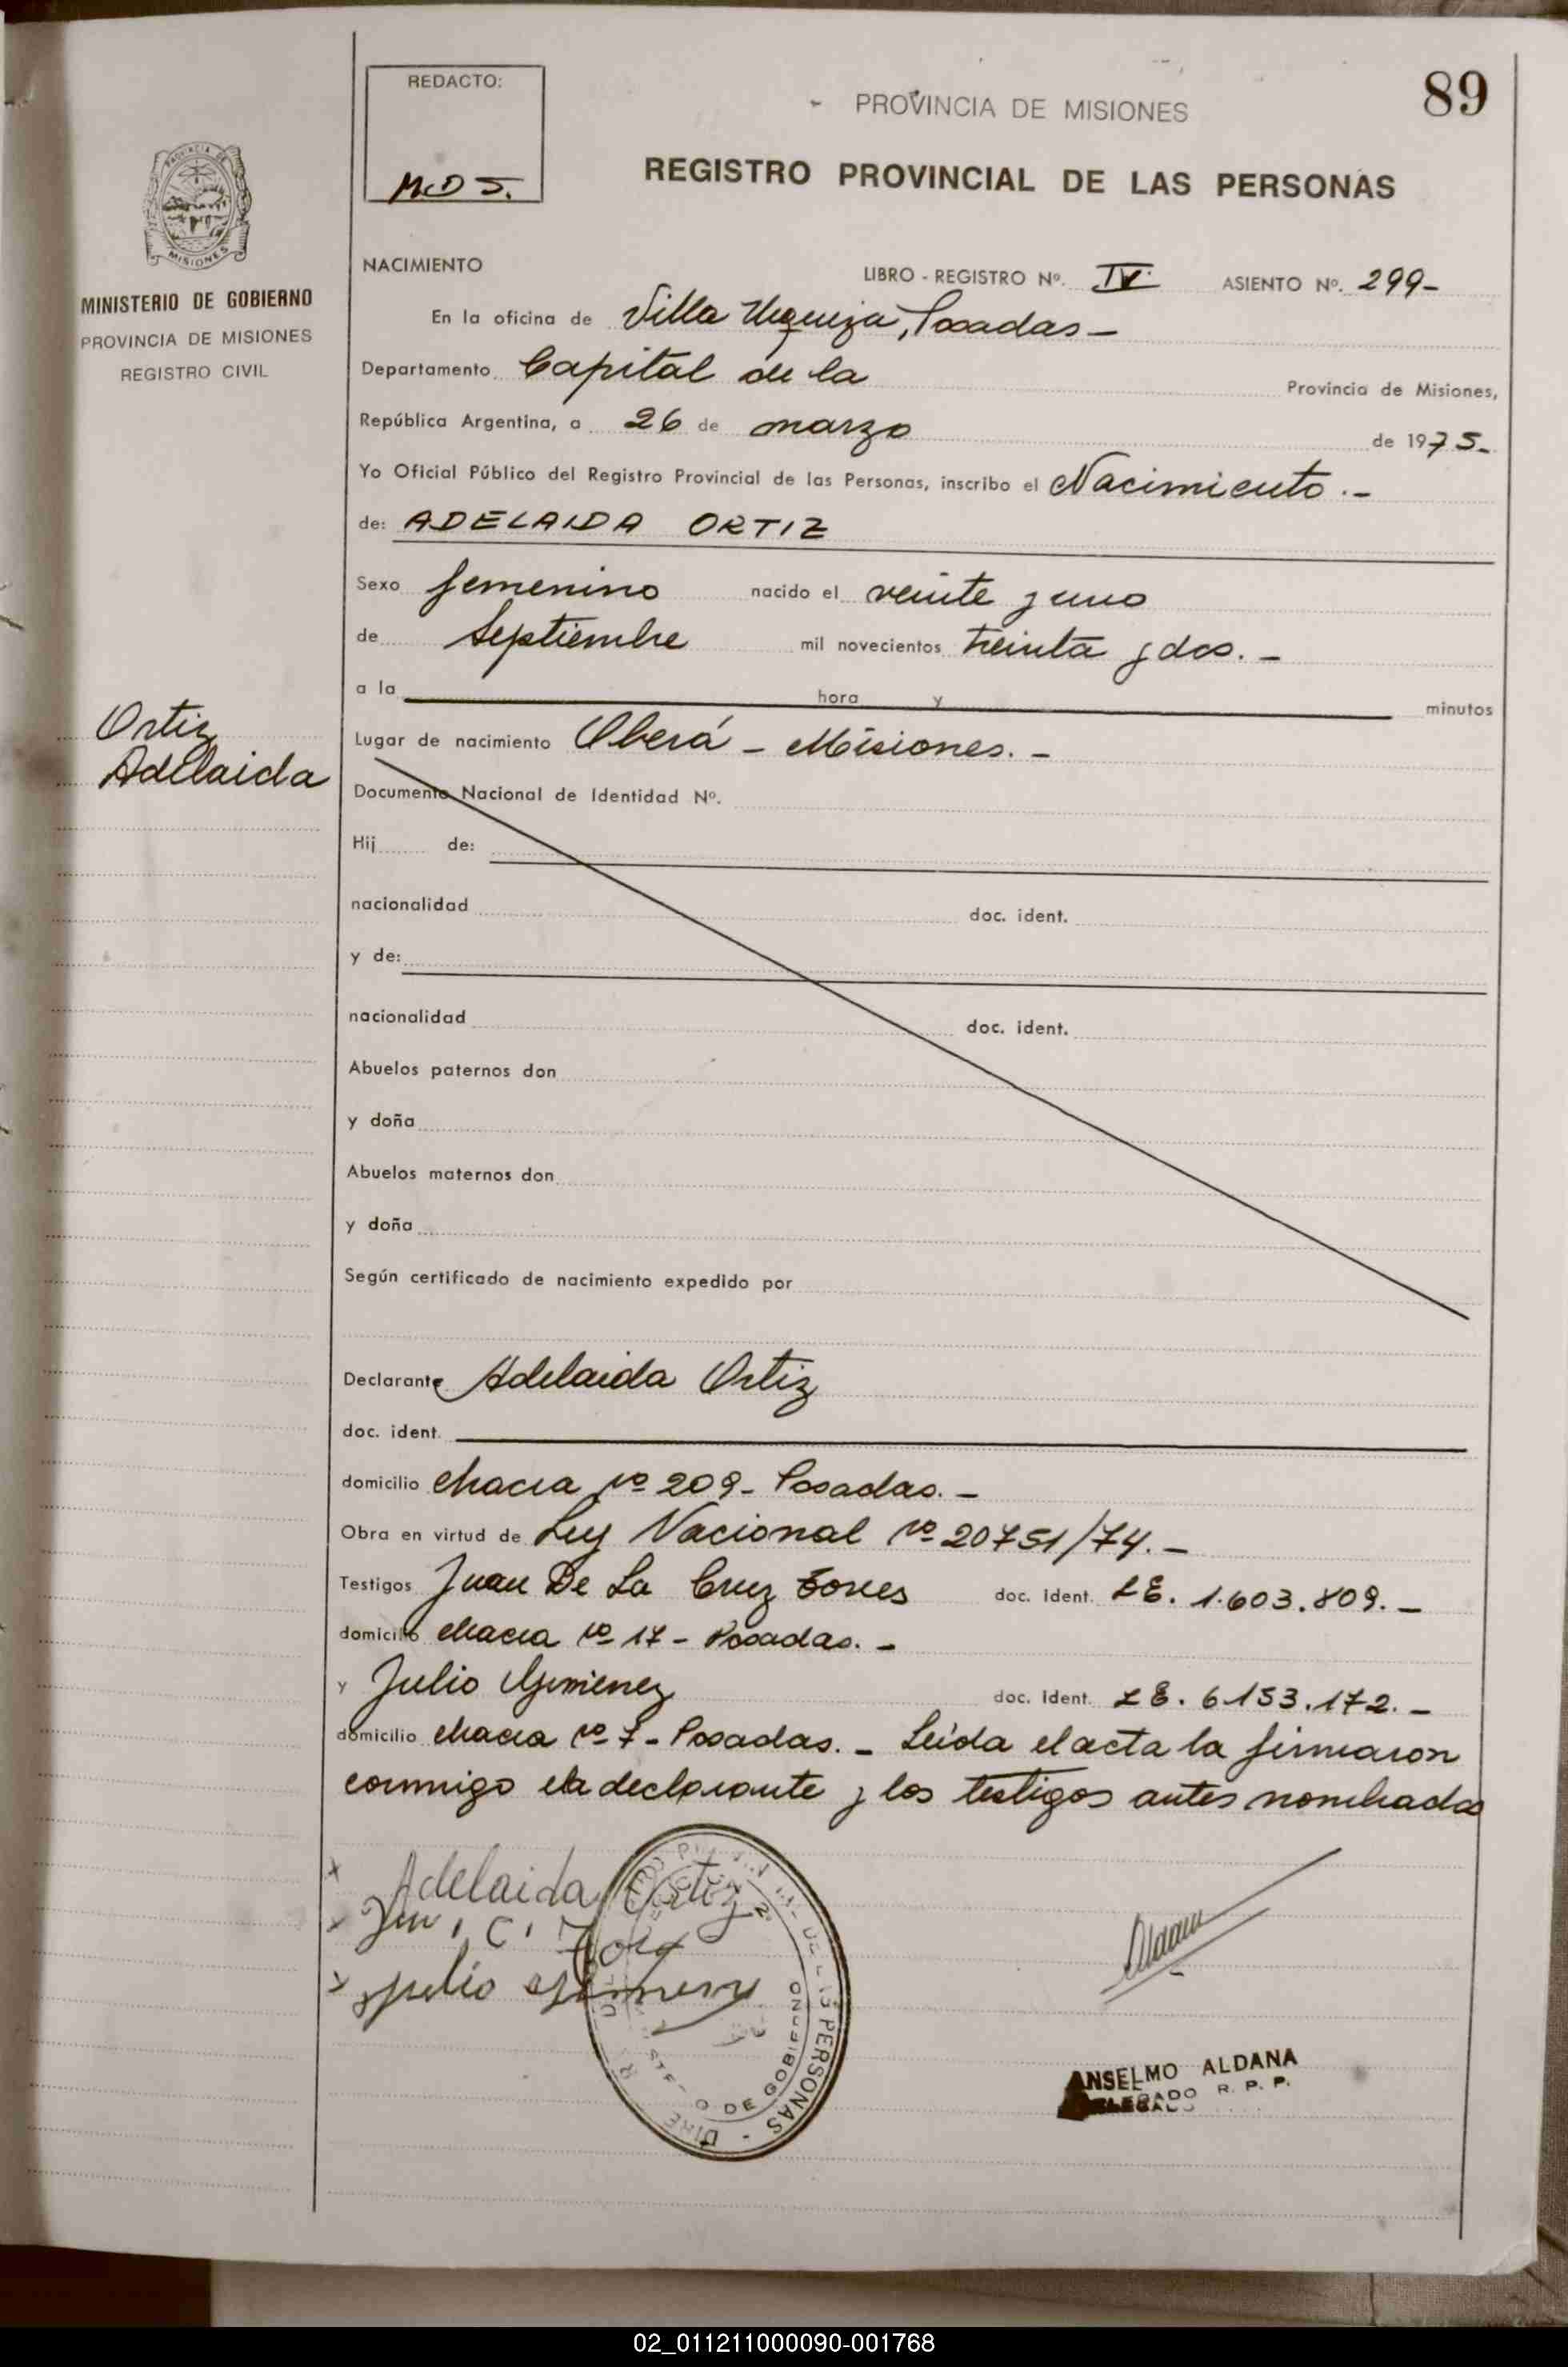 89
REDACTO:
M.D.S.
PROVINCIA DE MISIONES
REGISTRO PROVINCIAL DE LAS PERSONAS
PROVINCIA DE
MISIONES
MINISTERIO DE GOBIERNO
PROVINCIA DE MISIONES
REGISTRO CIVIL
NACIMIENTO
LIBRO - REGISTRO Nº. IV. ASIENTO Nº. 299-
En la oficina de Villa Urquiza, Posadas -
Departamento Capital de la Provincia de Misiones,
República Argentina, a 26 de marzo de 1975-
Yo Oficial Público del Registro Provincial de las Personas, inscribo el Nacimiento.-
de: ADELAIDA ORTIZ
Sexo femenino nacido el veinte y uno
de Septiembre mil novecientos treinta y dos. -
a la hora y minutos
Ortiz
Adelaida
Lugar de nacimiento Oberá - Misiones. -
Documento Nacional de Identidad Nº.
Hij de:
nacionalidad doc. ident.
y de:
nacionalidad doc. ident.
Abuelos paternos don
y doña
Abuelos maternos don
y doña
Según certificado de nacimiento expedido por
Declarante Adelaida Ortiz
doc. ident.
domicilio chacra nº 209- Posadas. -
Obra en virtud de Ley Nacional nº 20751/74. -
Testigos Juan De La Cruz Torres doc. ident. LE. 1.603.809. -
domicilio chacra nº 17 - Posadas. -
y Julio Gimenez doc. ident. LE. 6153.172. -
domicilio chacra nº 7 - Posadas. - Leída el acta la firmaron
conmigo la declarante y los testigos antes nombrados
x Adelaida Ortiz
x C.
x Julio
DE LAS PERSONAS - DIRE
DE GOBIERNO
ANSELMO ALDANA
DELEGADO R. P. P.
02_011211000090-001768